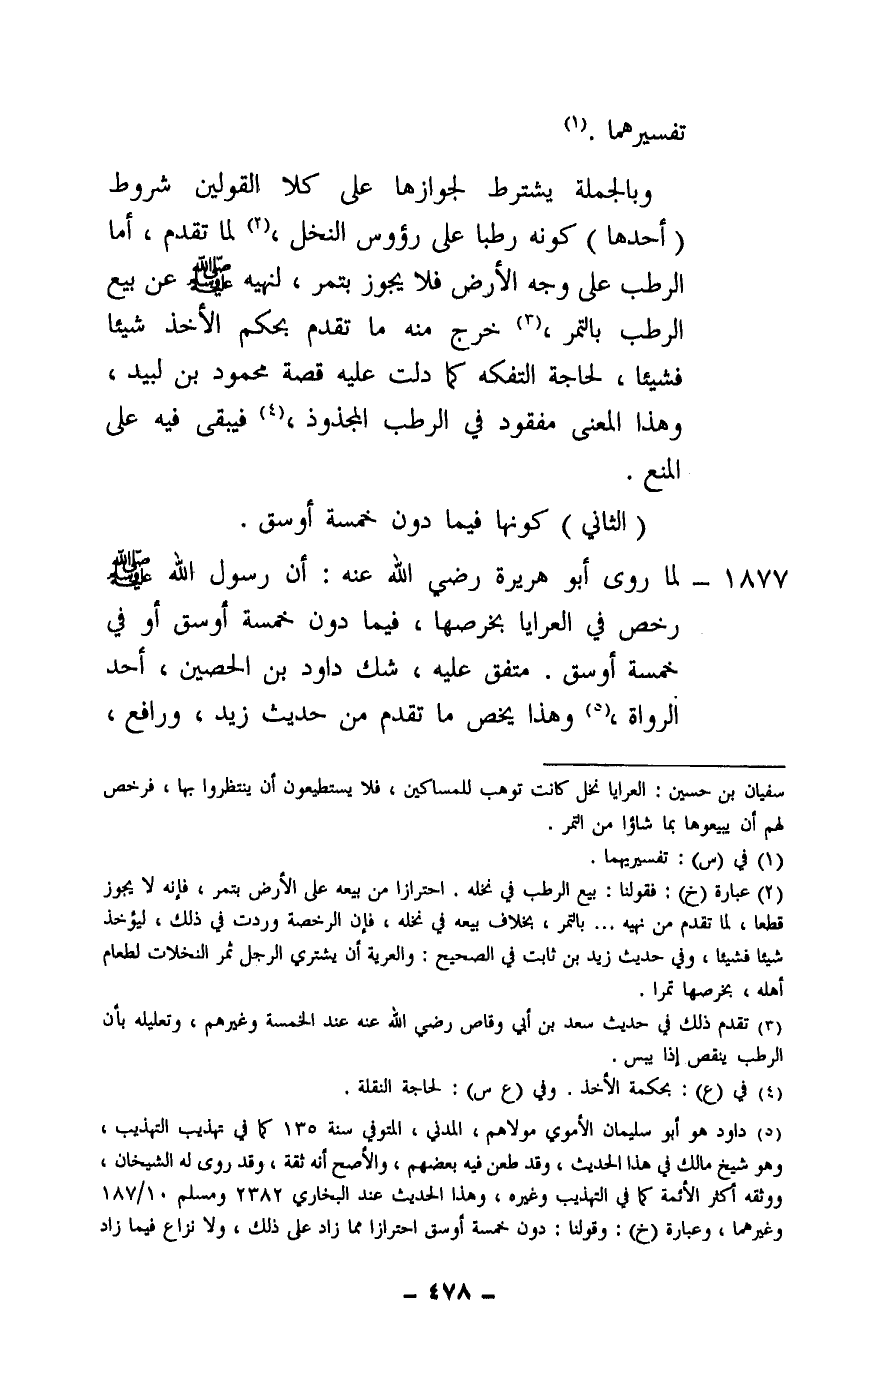 تفسيرهما .(١)
وبالجملة يشترط لجوازها على كلا القولين شروط
( أحدها ) كونه رطبا على رؤوس النخل ،(٢) لما تقدم ، أما
الرطب على وجه الأرض فلا يجوز بتمر ، لنهيه ﷺ عن بيع
الرطب بالتمر ،(٣) خرج منه ما تقدم بحكم الأخذ شيئا
فشيئا ، لحاجة التفكه كما دلت عليه قصة محمود بن لبيد ،
وهذا المعنى مفقود في الرطب المجذوذ ،(٤) فيبقى فيه على
المنع .
( الثاني ) كونها فيما دون خمسة أوسق .
١٨٧٧ – لما روى أبو هريرة رضي الله عنه : أن رسول الله ﷺ
رخص في العرايا بخرصها ، فيما دون خمسة أوسق أو في
خمسة أوسق . متفق عليه ، شك داود بن الحصين ، أحد
الرواة ،(٥) وهذا يخص ما تقدم من حديث زيد ، ورافع ،
سفيان بن حسين : العرايا نخل كانت توهب للمساكين ، فلا يستطيعون أن ينتظروا بها ، فرخص
لهم أن يبيعوها بما شاؤا من التمر .
(١) في (س) : تفسيريهما .
(٢) عبارة (خ) : فقولنا : بيع الرطب في نخله . احترازا من بيعه على الأرض بتمر ، فإنه لا يجوز
قطعا ، لما تقدم من نهيه ... بالتمر ، بخلاف بيعه في نخله ، فإن الرخصة وردت في ذلك ، ليؤخذ
شيئا فشيئا ، وفي حديث زيد بن ثابت في الصحيح : والعرية أن يشتري الرجل ثمر النخلات لطعام
أهله ، بخرصها تمرا .
(٣) تقدم ذلك في حديث سعد بن أبي وقاص رضي الله عنه عند الخمسة وغيرهم ، وتعليله بأن
الرطب ينقص إذا يبس .
(٤) في (ع) : بحكمة الأخذ . وفي (ع س) : لحاجة النقلة .
(٥) داود هو أبو سليمان الأموي مولاهم ، المدني ، المتوفي سنة ١٣٥ كما في تهذيب التهذيب ،
وهو شيخ مالك في هذا الحديث ، وقد طعن فيه بعضهم ، والأصح أنه ثقة ، وقد روى له الشيخان ،
ووثقه أكثر الأئمة كما في التهذيب وغيره ، وهذا الحديث عند البخاري ٢٣٨٢ ومسلم ١٨٧/١٠
وغيرهما ، وعبارة (خ) : وقولنا : دون خمسة أوسق احترازا مما زاد على ذلك ، ولا نزاع فيما زاد
– ٤٧٨ –